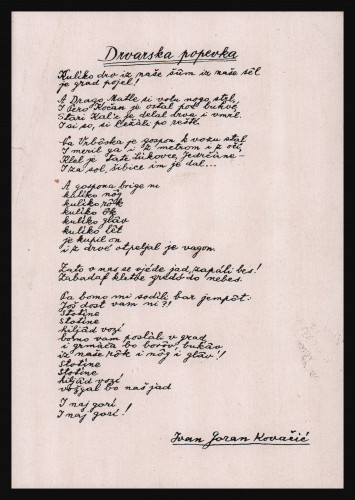 Drvarska popevka
Kuliko drv iz naše šum iz naše sel
je grad pojel!
A Drago Matle si volu nogo stąl,
I Pero Kočan je ostal pod bukvo
Stari Kal'z je delal drva i vmrl.
I si so, si ležąli po rešti.
ba Vrbôska je gospon k vozu stal
I meril ga i z metrom i z oči,
Klel je Tate Lükovce, Jedrčane–
I za sol, šibice im je dal...
A gospona brige ni
kuliko nôg
kuliko rôtk
kuliko ôk
kuliko glâv
kuliko lêt
je kupil on
i z drvi otpeljal je vagon.
Zato v nas se vjêde jad, zapáli bes!
Zabadaj kletve grdó do nebes.
ba bomo mi sodili bar jempôt:
Još dost vam ni?!
Stotine
Stotine
hiljâd vozi
bomo vam poslali v grad
i grmâča bo borôv, bukâv
iz naše rôk i nôg i glâv!
Stotine
Stotine
hiljâd vozi
vužgal bo naš jad
I naj gori
I naj gori!
Ivan Goran Kovačić